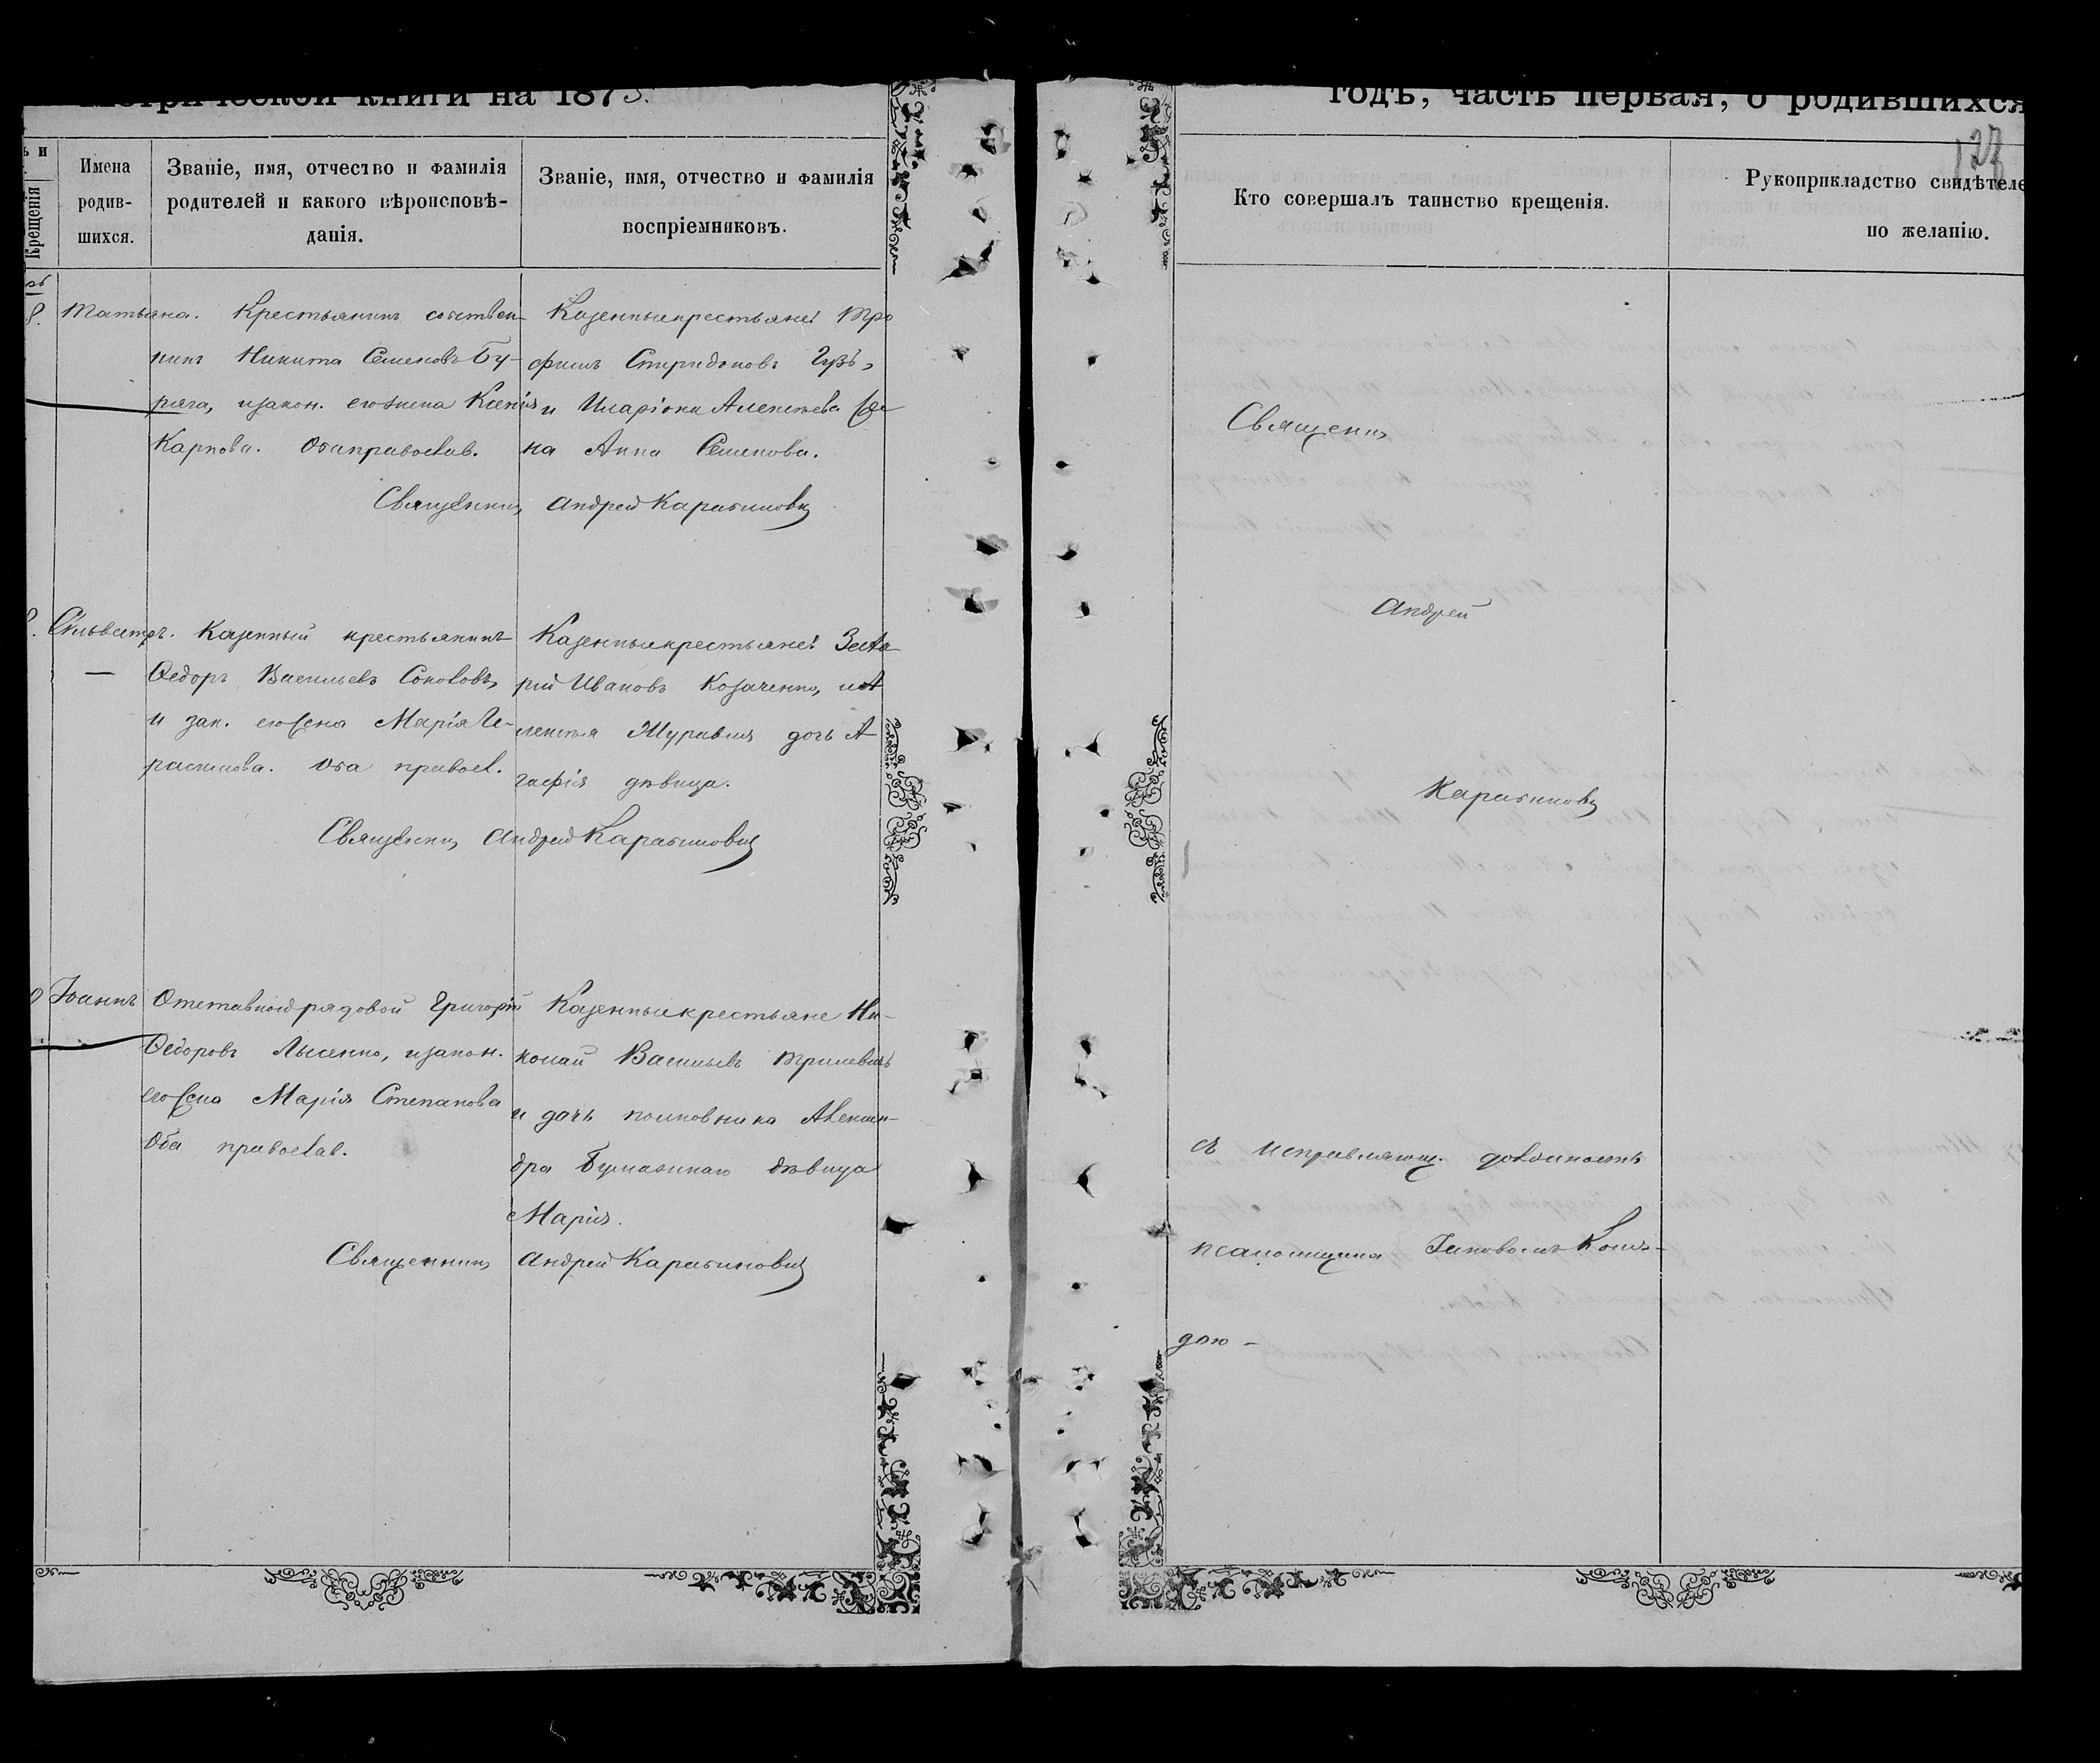 Метрической книги на 1873.
Имена родив-шихся.
Званіе, имя, отчество и фамилія родителей и какого вѣроисповѣ-данія.
Званіе, имя, отчество и фамилія воспріемниковъ.
Крещенія
Татьяна. Крестьянинъ собствен-
никъ Никита Семеновъ Бу-
ряга, и закон. его жена Ксенія
Карпова. Оба православ.
Казенные крестьяне: Тро
фимъ Спиридоновъ Гузь,
и Иларіона Алексѣева же
на Анна Семенова.
Священникъ Андрей Карабиновичъ
Сильвестръ. Казенный крестьянинъ
Ѳедоръ Васильевъ Соколовъ,
и зак. его жена Марія Ге-
расимова. Оба правосл.
Казенные крестьяне:
рій Ивановъ Козаченко, и А
лексѣя Журавля дочь А
гафія дѣвица.
Священникъ Андрей Карабиновичъ
Іоаннъ Отставной рядовой Григорій
Ѳедоровъ Лысенко, и закон.
его жена Марія Степанова
Оба православ.
Казенные крестьяне Ни-
колай Васильевъ
и дочь полковника Алексан-
дра дѣвица
Марія.
Священникъ Андрей Карабиновичъ
годъ, часть первая, о родившихся
127
Кто совершалъ таинство крещенія.
Рукоприкладство свидѣтеле
по желанію.
Священникъ
Андрей
Карабиновичъ
съ исправляющ. должность
псаломщика Іаковомъ Коля-
дою –